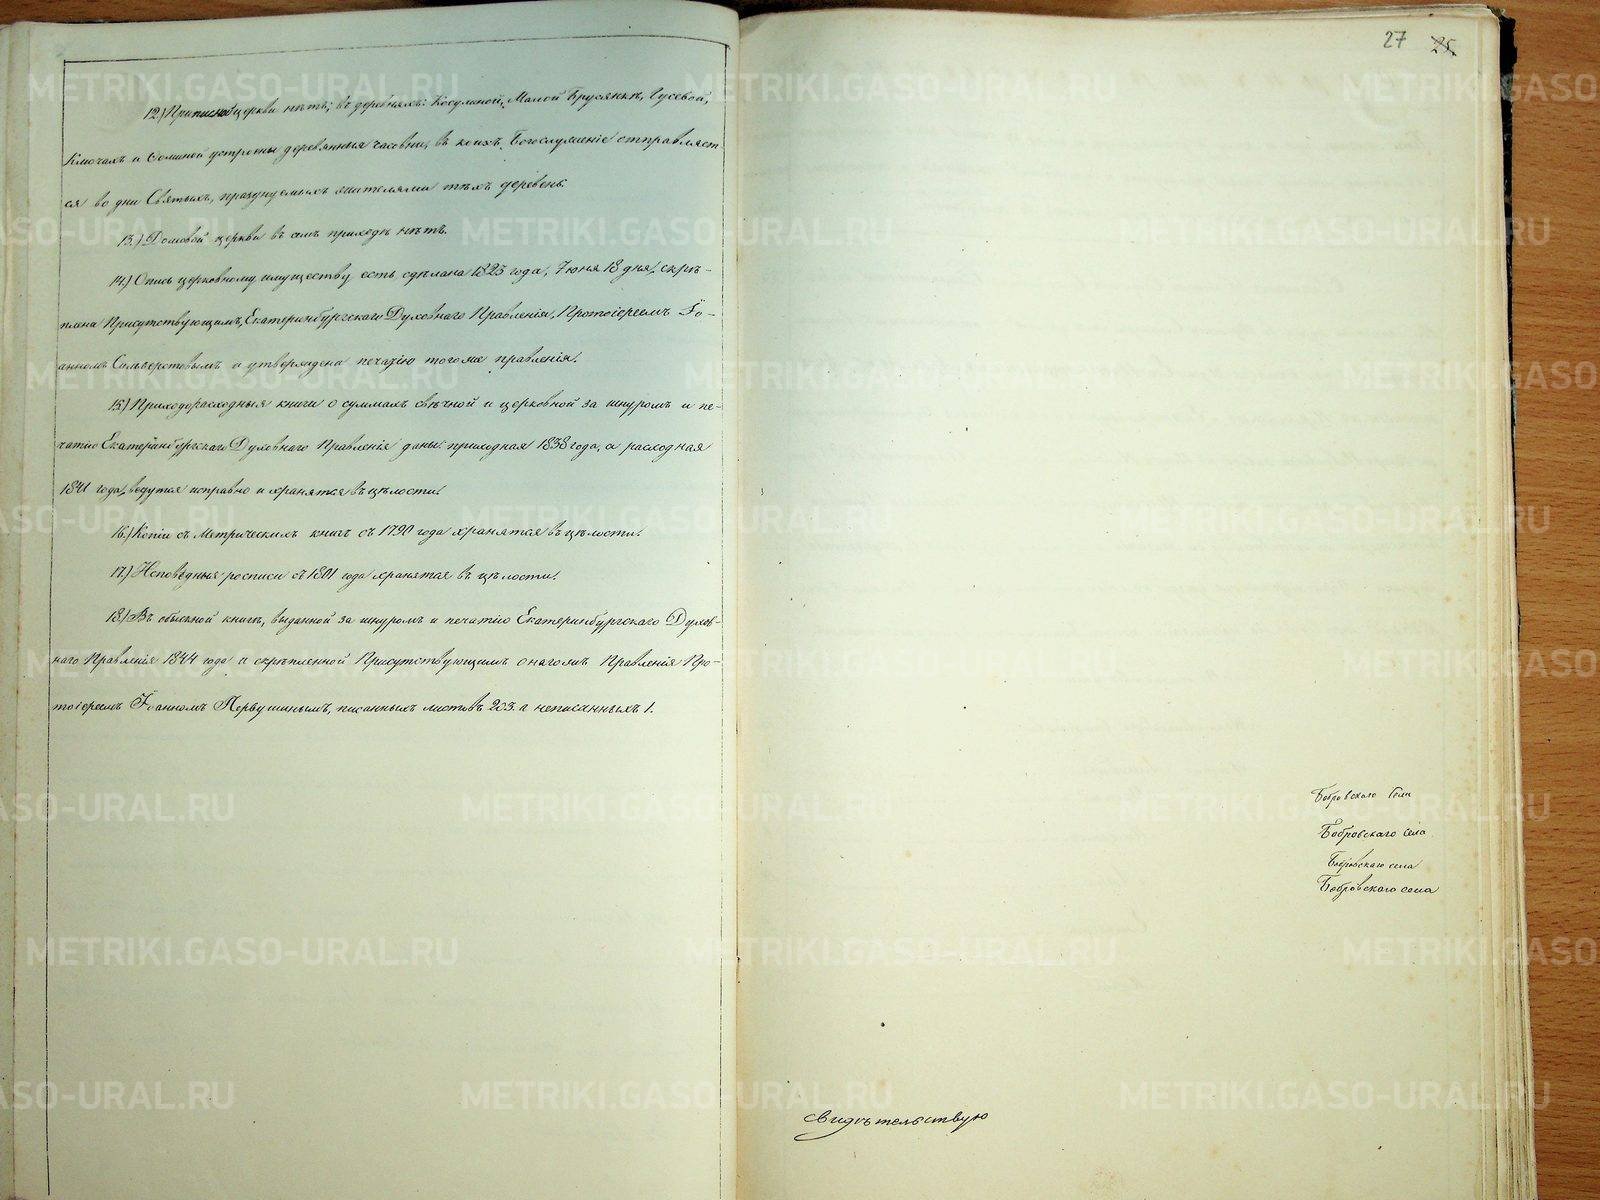 12.) Приписной церкви нѣтъ; въ деревняхъ: Косулиной, Малой Брусянкѣ, Гусевой,
Ключахъ и Фоминой устроены деревянныя часовни, въ коихъ Богослуженіе отправляет
ся во дни Святыхъ, празднуемыхъ жителями тѣхъ деревень.
13.) Домовой церкви въ семъ приходѣ нѣтъ.
14.) Опись церковному имуществу есть сдѣлана 1825 года, Іюня 18 дня, скрѣ-
плена Присутствующимъ Екатеринбургскаго Духовнаго Правленія, Протоіереемъ Іо-
анномъ Сильверстовымъ и утверждена печатію тогоже правленія.
15.) Приходорасходныя книги о суммахъ свѣчной и церковной за шнуромъ и пе-
чатію Екатеринбургскаго Духовнаго Правленія даны: приходная 1838 года, а расходная
1841 года, ведутся исправно и хранятся въ цѣлости.
16.) Копіи съ Метрическихъ книгъ съ 1790 года хранятся въ цѣлости.
17.) Исповѣдныя росписи съ 1801 года хранятся въ цѣлости.
18.) Въ обыскной книгѣ, выданной за шнуромъ и печатію Екатеринбургскаго Духов-
наго Правленія 1844 года и скрѣпленной Присутствующимъ онагожъ Правленія Про-
тоіереемъ Іоанномъ Первушинымъ, писанныхъ листовъ 203. а неписанныхъ 1.
27 25
Бобровскаго села
Бобровскаго села
Бобровскаго села
Бобровскаго села
Свидѣтельствую
METRIKI.GASO-URAL.RU